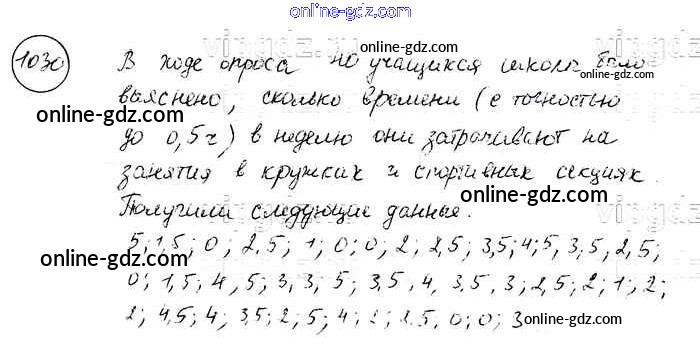 online-gdz.com
1030
В ходе опроса 40 учащихся школы было
выяснено, сколько времени (с точностью
до 0,5 ч) в неделю они затрачивают на
занятия в кружках и спортивных секциях.
Получили следующие данные.
5; 1,5; 0; 2,5; 1; 0; 0; 2; 2,5; 3,5; 4; 5, 3,5, 2,5;
0; 1,5; 4, 5; 3, 3; 5; 3,5, 4, 3,5, 3; 2,5; 2; 1; 2;
2; 4,5; 4; 3,5; 2; 5; 4; 2,5, 0; 0; 3
online-gdz.com
online-gdz.com
online-gdz.com
online-gdz.com
online-gdz.com
online-gdz.com